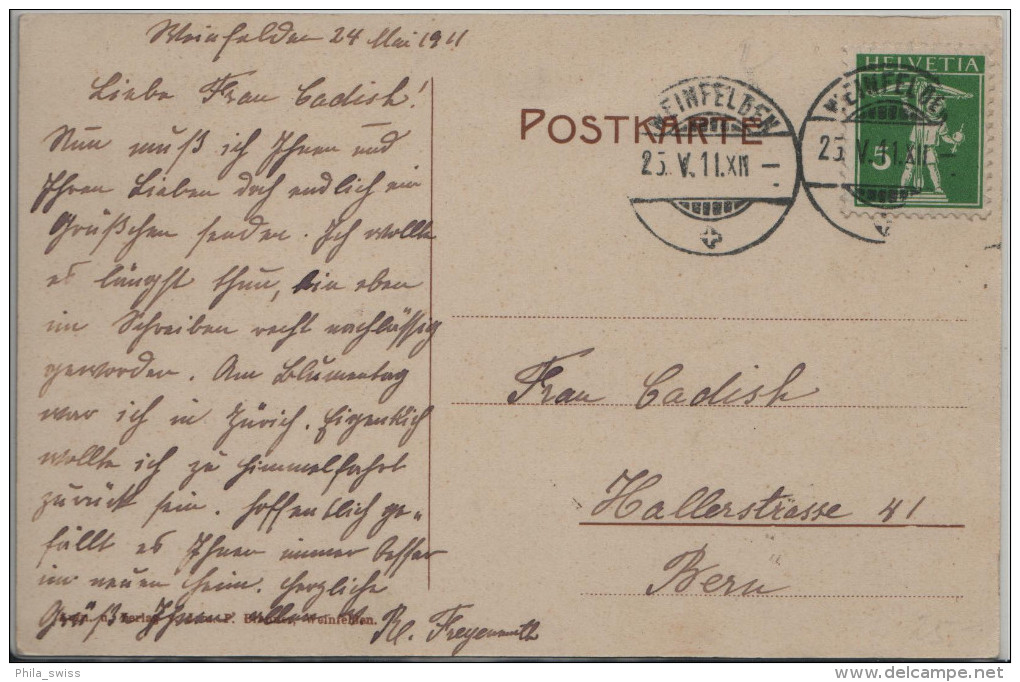 Weinfelden 24 Mai 1911
Liebe Frau Cadisch!
Nun muß ich Ihnen und
Ihren Lieben doch endlich ein
Grüßchen senden. Ich wollte
es längst thun, bin eben
im Schreiben recht nachlässig
geworden. Am Blumentag
war ich in Zürich. Eigentlich
wollte ich zu Himmelfahrt
zurück sein. Hoffentlich ge-
fällt es Ihnen immer besser
im neuen Heim. Herzliche
Grüße Ihnen allen
Freyenmuth
Weinfelden.
POSTKARTE
HELVETIA
5
WEINFELDEN
25. V. 11. XII –
WEINFELDEN
25. V. 11. XII –
Frau Cadisch
Hallerstrasse 41
Bern
Phila_swiss